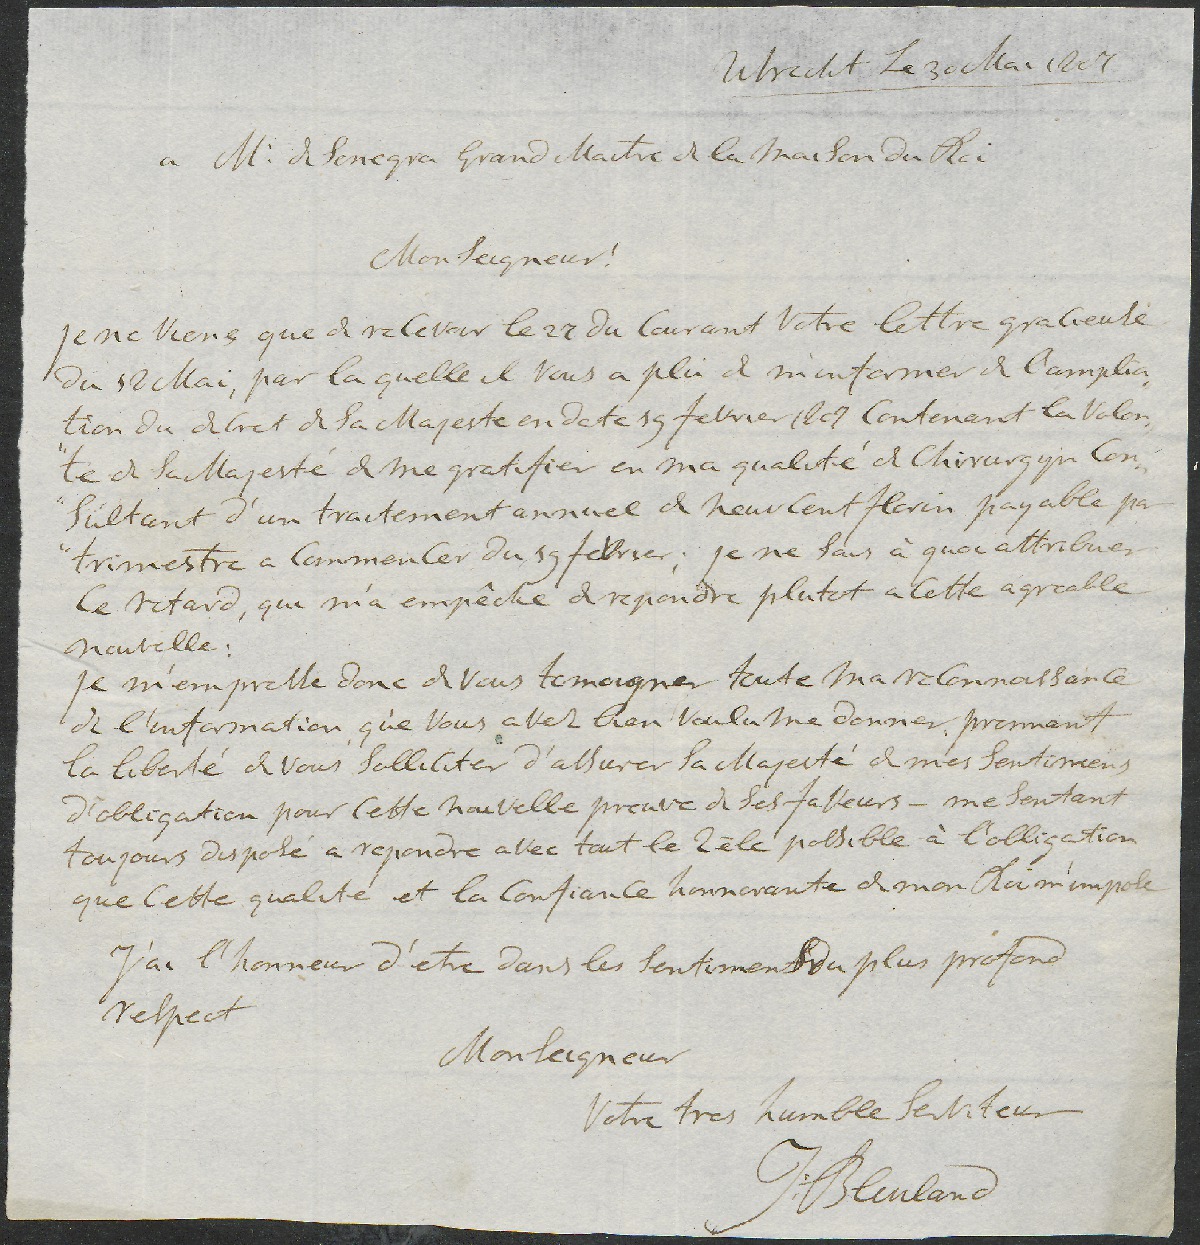 Utrecht Le 30 Mai 1807
a Mr. de Senegra Grand Maitre de la Maison du Roi
Monseigneur!
Je ne viens que de recevoir le 27 du Courant Votre lettre gracieuse
du 12 Mai, par la quelle il Vous a plu de m'informer de l'amplia„
tion du decret de Sa Majeste en date 19 fevrier 1807 Contenant la Volon„
"te de Sa Majesté de me gratifier en ma qualité de Chirurgyn Con„
"sultant d'un traitement annuel de neuf Cent florin payable par
"trimestre a Commencer du 19 fevrier; je ne sais à quoi attribuer
Ce retard, qui m'a empêche de repondre plutot a Cette agreable
nouvelle:
Je m'empresse donc de Vous temoigner toute ma reconnoissance
de l'information que Vous avez bien voulu me donner, prennent
la liberté de Vous Solliciter d'assurer Sa Majesté de mes Sentimens
d'obligation pour Cette nouvelle preuve de Ses faveurs – me Sentant
toujours disposé a repondre avec tout le Zèle possible à l'obligation
que Cette qualité et la Confiance honnorante de mon Roi m'impose
J'ai l'honneur d'etre dans les Sentimens du plus profond
respect
Monseigneur
Votre tres humble Serviteur
J: Bleuland